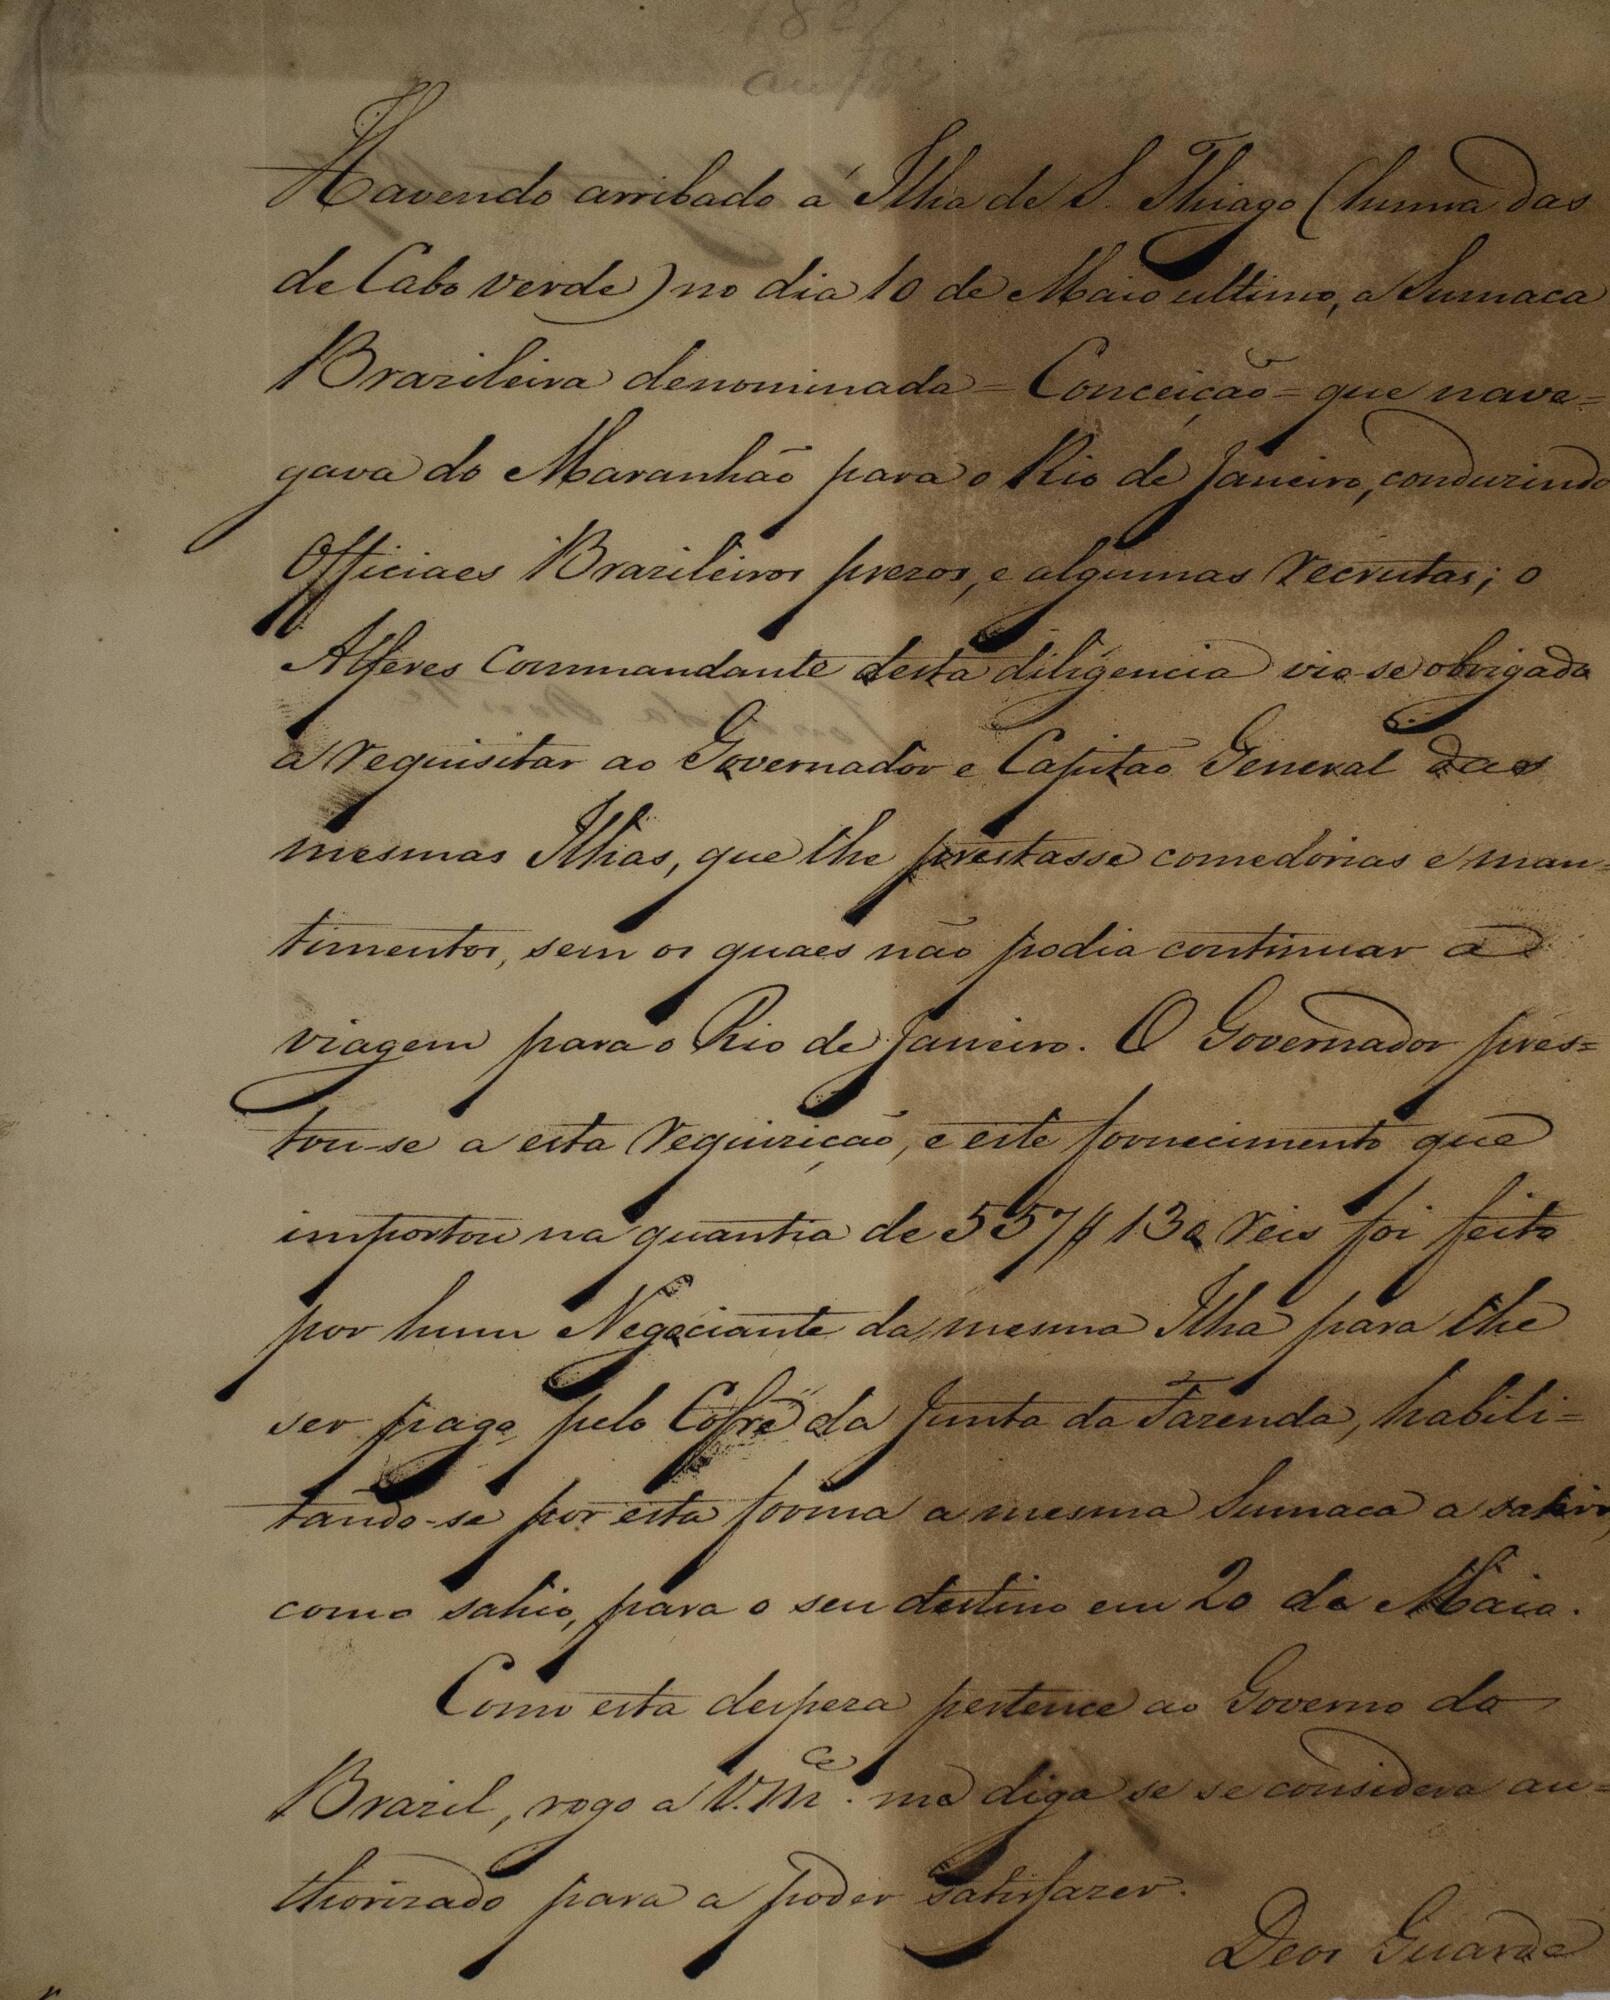 Havendo arribado á Ilha de S. Thiago (huma das
de Cabo verde) no dia 10 de Maio ultimo, a Sumaca
Brazileira denominada = Conceição = que nave=
gava do Maranhão para o Rio de Janeiro, conduzindo
Officiaes Brazileiros prezos, e algumas recrutas; o
Alferes Commandante desta diligencia vio-se obrigado
a requisitar ao Governador e Capitão General das
mesmas Ilhas, que lhe prestasse comedorias e man=
timentos, sem os quaes não podia continuar a
viagem para o Rio de Janeiro. O Governador pres=
tou-se a esta requizição, e este fornecimento que
importou na quantia de 557$130 reis foi feito
por hum Negociante da mesma Ilha para lhe
ser pago pelo Cofre da Junta da Fazenda, habili=
tando-se por esta forma a mesma Sumaca a sahir,
como sahio, para o seu destino em 20 de Maio.
Como esta despeza pertence ao Governo do
Brazil, rogo a V.Mce. me diga se se considera au=
thorizado para a poder satisfazer.
Deos Guarde